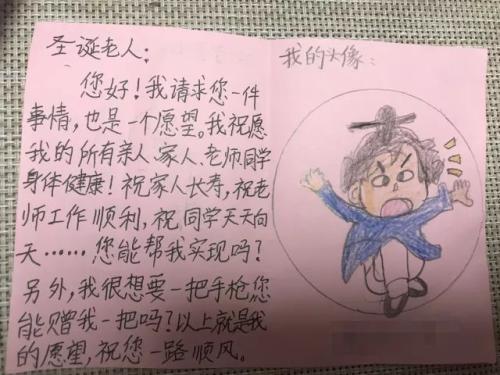 圣诞老人：
您好！我请求您一件
事情，也是一个愿望。我祝愿
我的所有亲人、家人、老师同学
身体健康！祝家人长寿，祝老
师工作顺利，祝同学天天向
天……您能帮我实现吗？
另外，我很想要一把手枪，您
能赠我一把吗？以上就是我
的愿望，祝您一路顺风。
我的头像：